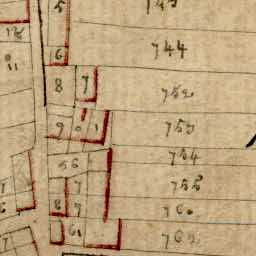 5
6
744
8 7
752
9 0 1
753
56
754
7
755
8 9
760
61
762
7
6
7